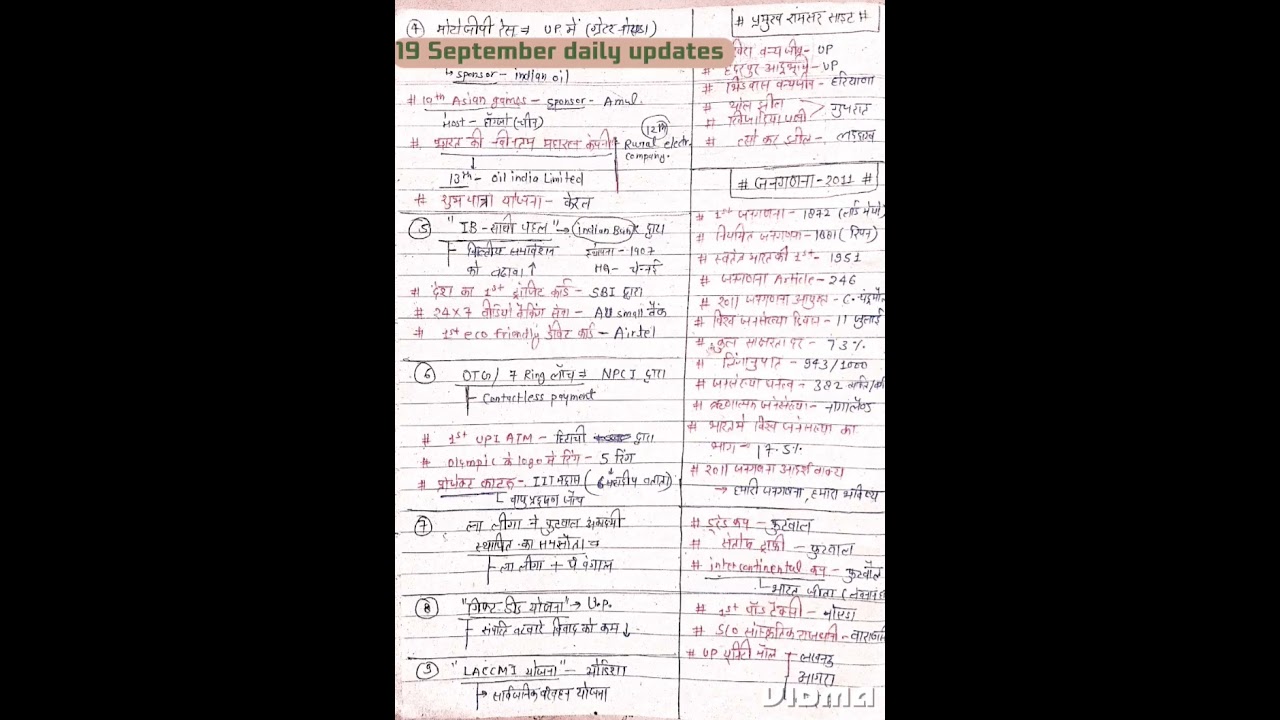 ④ मोटोजीपी रेस ⇒ UP में (ग्रेटर नोएडा)
19 September daily updates
↳ sponsor - indian oil
# 10th Asian games - sponsor - Amul.
Host - हॉग्जो (चीन)
# भारत की नवीनतम महारत्न कंपनी
12th
Rural electr. company.
13th - oil india Limited
# शुभ यात्रा योजना - केरल
⑤ "IB - साथी पहल" → indian Bank द्वारा
वित्तीय समावेशन स्थापना - 1907
को बढ़ावा ↑ HQ - चेन्नई
# देश का 1st ट्रांजिट कार्ड - SBI द्वारा
# 24x7 वीडियो बैंकिंग सेवा - AU small बैंक
# 1st eco friendly डेबिट कार्ड - Airtel
⑥ OTG/ 7 Ring लॉच ⇒ NPCI द्वारा
Contactless payment
# 1st UPI ATM - हिटाची द्वारा
# olympic के logo में रिंग - 5 रिंग
# प्रोजेक्ट - IIT मद्रास (
वायु प्रदूषण जाँच
⑦ ला लीगा ने फुटबाल अकादमी
स्थापित का समझौता
ला लीगा + प. बंगाल
⑧ "गिफ्ट डीड योजना" → U.P.
संपत्ति बटवारे विवाद को कम ↓
⑨ "LACCMI योजना" - ओडिशा
→ सार्वजनिक परिवहन योजना
# प्रमुख रामसर साइट #
वन्य जीव - UP
# हैदरपुर आर्द्रभूमि - UP
# भिंडवास वन्यजीव - हरियाणा
# थोल झील
# गुजरात
# त्सो कर झील - लद्दाख
# जनगणना - 2011 #
# 1st जनगणना - 1872 (लार्ड मेयो)
# नियमित जनगणना - 1881 (रिपन)
# स्वतंत्र भारत की 1st - 1951
# जनगणना Article - 246
# 2011 जनगणना आयुक्त - C. चंद्रमौ
# विश्व जनसंख्या दिवस - 11 जुलाई
# कुल साक्षरता दर - 73%
# लिंगानुपात - 943/1000
# जनसंख्या घनत्व - 382
# ऋणात्मक जनसंख्या - नागालैण्ड
# भारत में विश्व जनसंख्या का
भाग = 17.5%
# 2011 जनगणना आदर्श वाक्य
→ हमारी जनगणना, हमारा भविष्य
# डूरंड कप - फुटबाल
# संतोष ट्राफी - फुटबाल
# intercontinental कप - फुटबॉल
भारत जीता
# 1st पॉड टैक्सी - नोएडा
# SCO सांस्कृतिक राजधानी - वाराण
# UP यूनिटी मॉल लखनऊ
आगरा